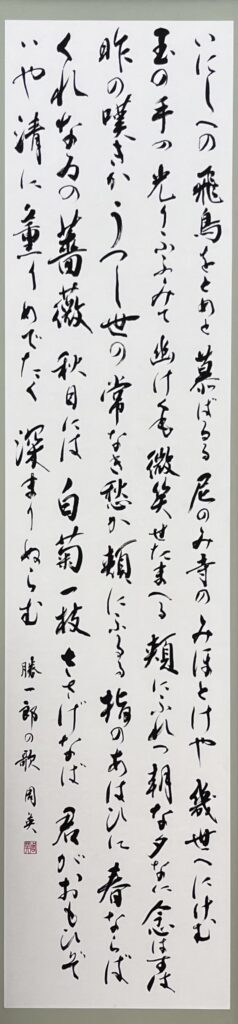 いにしへの飛鳥をとめと慕ばるる尼のみ寺のみほとけや幾世へにけむ
玉の手の光りふふみて幽けくも微笑せたまへる頬にふれつ朝な夕なに念はすは
昨の嘆きかうつし世の常なき愁か頬にふるる指のあはひに春ならば
くれなゐの薔薇秋日には白菊一枝ささげなば君がおもひぞ
いや清に薫りめでたく深まりぬらむ 勝一郎の歌 周英